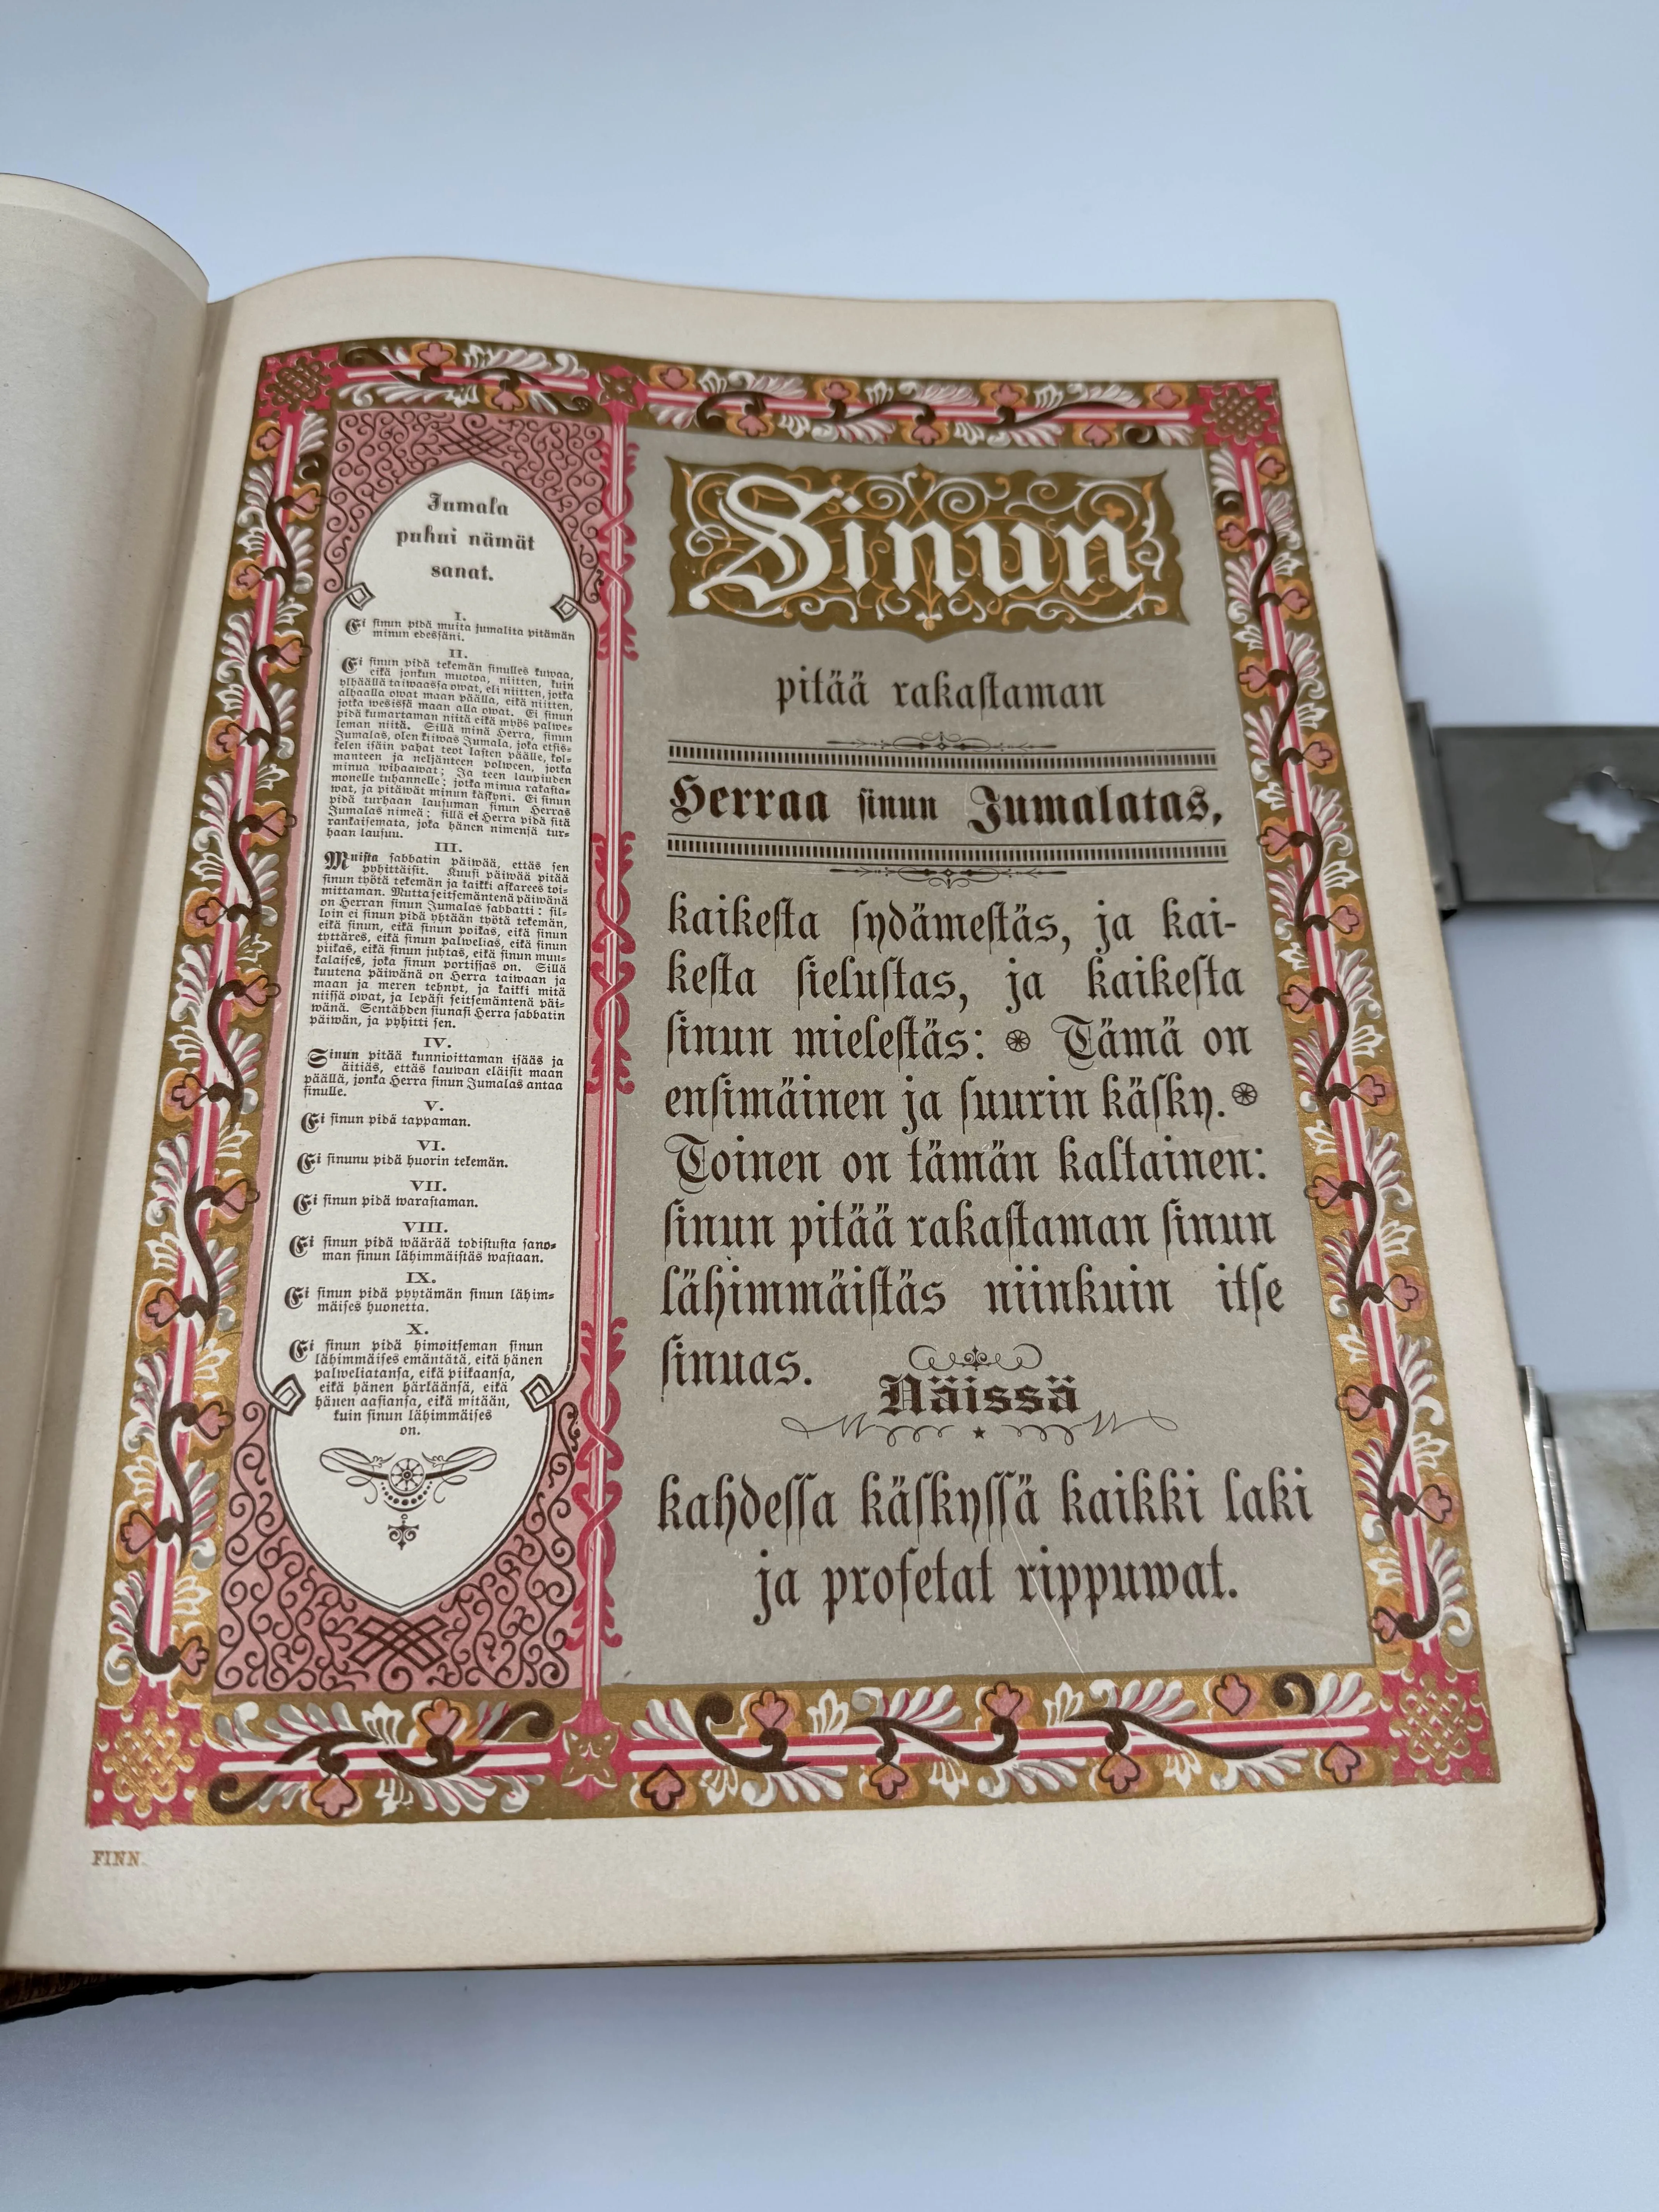 Jumala
puhui nämät
sanat.
I.
Ei sinun pidä muita jumalita pitämän
minun edessäni.
II.
Ei sinun pidä tekemän sinulles kuwaa,
eikä jonkun muotoa, niitten, kuin
ylhäällä taiwaassa owat, eli niitten, jotka
alhaalla owat maan päälla, eikä niitten,
jotka wesissä maan alla owat. Ei sinun
pidä kumartaman niitä eikä myös palwe-
leman niitä. Sillä minä Herra, sinun
Jumalas, olen kiiwas Jumala, joka etsis-
kelen isäin pahat teot lasten päälle, kol-
manteen ja neljänteen polween, jotka
minua wihaawat; Ja teen laupiuden
monelle tuhannelle; jotka minua rakasta-
wat, ja pitäwät minun käskyni. Ei sinun
pidä turhaan lausuman sinun Herras
Jumalas nimeä; sillä ei Herra pidä sitä
rankaisemata, joka hänen nimensä tur-
haan lausuu.
III.
Muista sabbatin päiwää, ettäs sen
pyhittäisit. Kuusi päiwää pitää
sinun työtä tekemän ja kaikki askarees toi-
mittaman. Mutta seitsemäntenä päiwänä
on Herran sinun Jumalas sabbatti: sil-
loin ei sinun pidä yhtään työtä tekemän,
eikä sinun, eikä sinun poikas, eikä sinun
tyttäres, eikä sinun palwelias, eikä sinun
piikas, eikä sinun juhtas, eikä sinun muu-
kalaises, joka sinun portissas on. Sillä
kuutena päiwänä on Herra taiwaan ja
maan ja meren tehnyt, ja kaikki mitä
niissä owat, ja lepäsi seitsemäntenä päi-
wänä. Sentähden siunasi Herra sabbatin
päiwän, ja pyhitti sen.
IV.
Sinun pitää kunnioittaman isääs ja
äitiäs, ettäs kauwan eläisit maan
päällä, jonka Herra sinun Jumalas antaa
sinulle.
V.
Ei sinun pidä tappaman.
VI.
Ei sinunu pidä huorin tekemän.
VII.
Ei sinun pidä warastaman.
VIII.
Ei sinun pidä wäärää todistusta sano-
man sinun lähimmäistäs wastaan.
IX.
Ei sinun pidä pyytämän sinun lähim-
mäises huonetta.
X.
Ei sinun pidä himoitseman sinun
lähimmäises emäntätä, eikä hänen
palweliatansa, eikä piikaansa,
eikä hänen härkäänsä, eikä
hänen aasiansa, eikä mitään,
kuin sinun lähimmäises
on.
Sinun
pitää rakastaman
Herraa sinun Jumalatas,
kaikesta sydämestäs, ja kai-
kesta sielustas, ja kaikesta
sinun mielestäs: Tämä on
ensimäinen ja suurin käsky.
Toinen on tämän kaltainen:
sinun pitää rakastaman sinun
lähimmäistäs niinkuin itse
sinuas.
Näissä
kahdessa käskyssä kaikki laki
ja profetat rippuwat.
FINN.